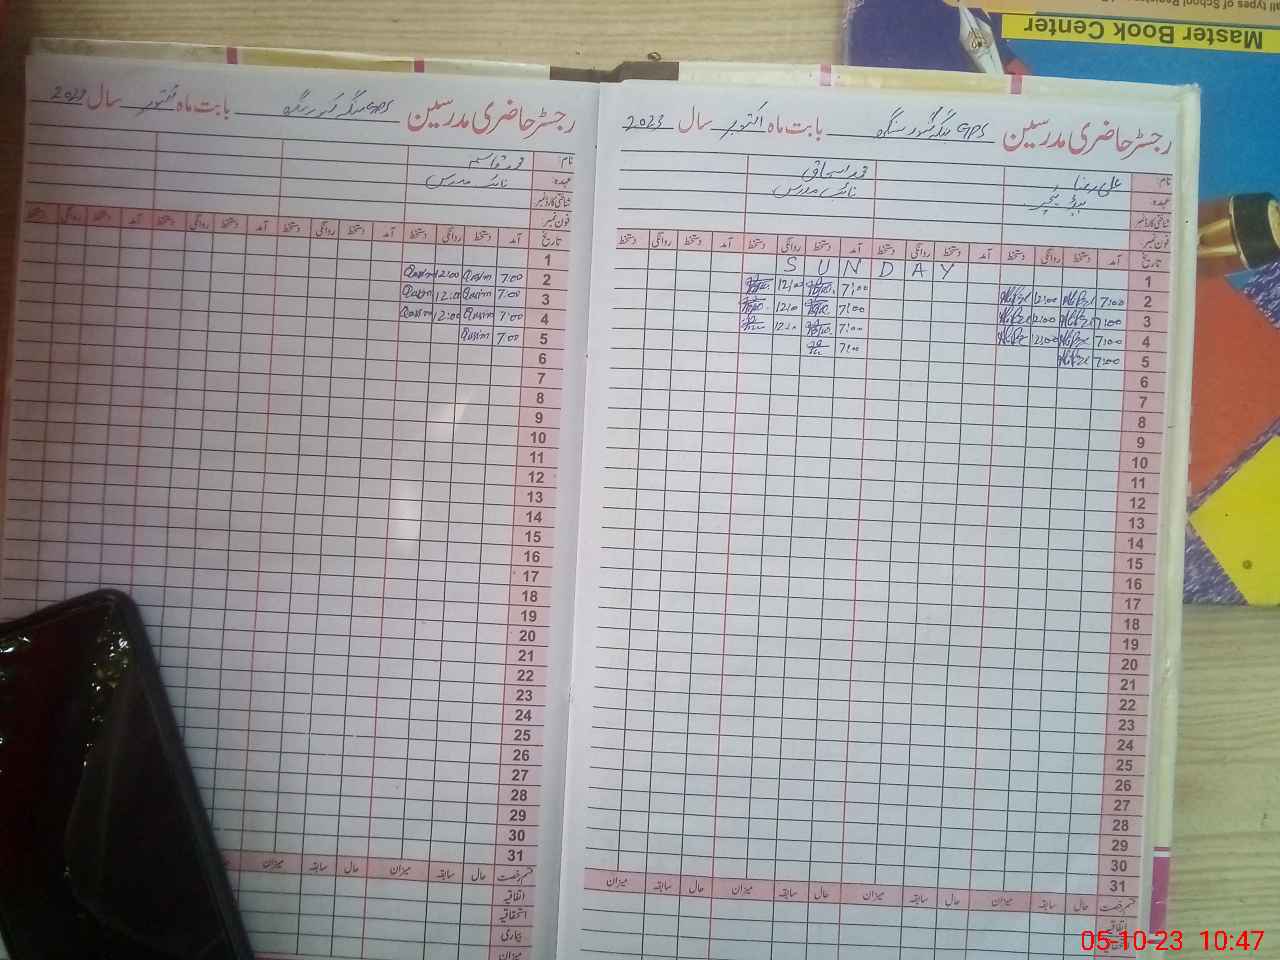 Master Book Center
all types of School Registers
رجسٹر حاضری مدرسین GPS بابت ماہ اکتوبر سال 2023
نام: علی رضا محمد اسحاق
عہدہ: ہیڈ ٹیچر نائب مدرس
شناختی کارڈ نمبر
فون نمبر:
تاریخ آمد دستخط روانگی دستخط آمد دستخط روانگی دستخط آمد دستخط روانگی دستخط آمد دستخط روانگی دستخط
1 SUNDAY
2 7:00 12:00 7:00 12:00
3 7:00 12:00 7:00 12:0
4 7:00 12:00 7:00 12:0
5 7:00 7:00
6
7
8
9
10
11
12
13
14
15
16
17
18
19
20
21
22
23
24
25
26
27
28
29
30
31
قسم رخصت حال سابقہ میزان حال سابقہ میزان حال سابقہ میزان حال سابقہ میزان
اتفاقیہ
رجسٹر حاضری مدرسین GPS بابت ماہ اکتوبر سال 2023
نام: محمد قاسم
عہدہ: نائب مدرس
شناختی کارڈ نمبر
فون نمبر:
تاریخ آمد دستخط روانگی دستخط آمد دستخط روانگی دستخط آمد دستخط روانگی دستخط آمد دستخط روانگی دستخط
1
2 7:00 Qasim 12:00 Qasim
3 7:00 Qasim 12:00 Qasim
4 7:00 Qasim 12:00 Qasim
5 7:00 Qasim
6
7
8
9
10
11
12
13
14
15
16
17
18
19
20
21
22
23
24
25
26
27
28
29
30
31
قسم رخصت حال سابقہ میزان حال سابقہ میزان
اتفاقیہ
استحقاقیہ
بیماری
میزان
05-10-23 10:47